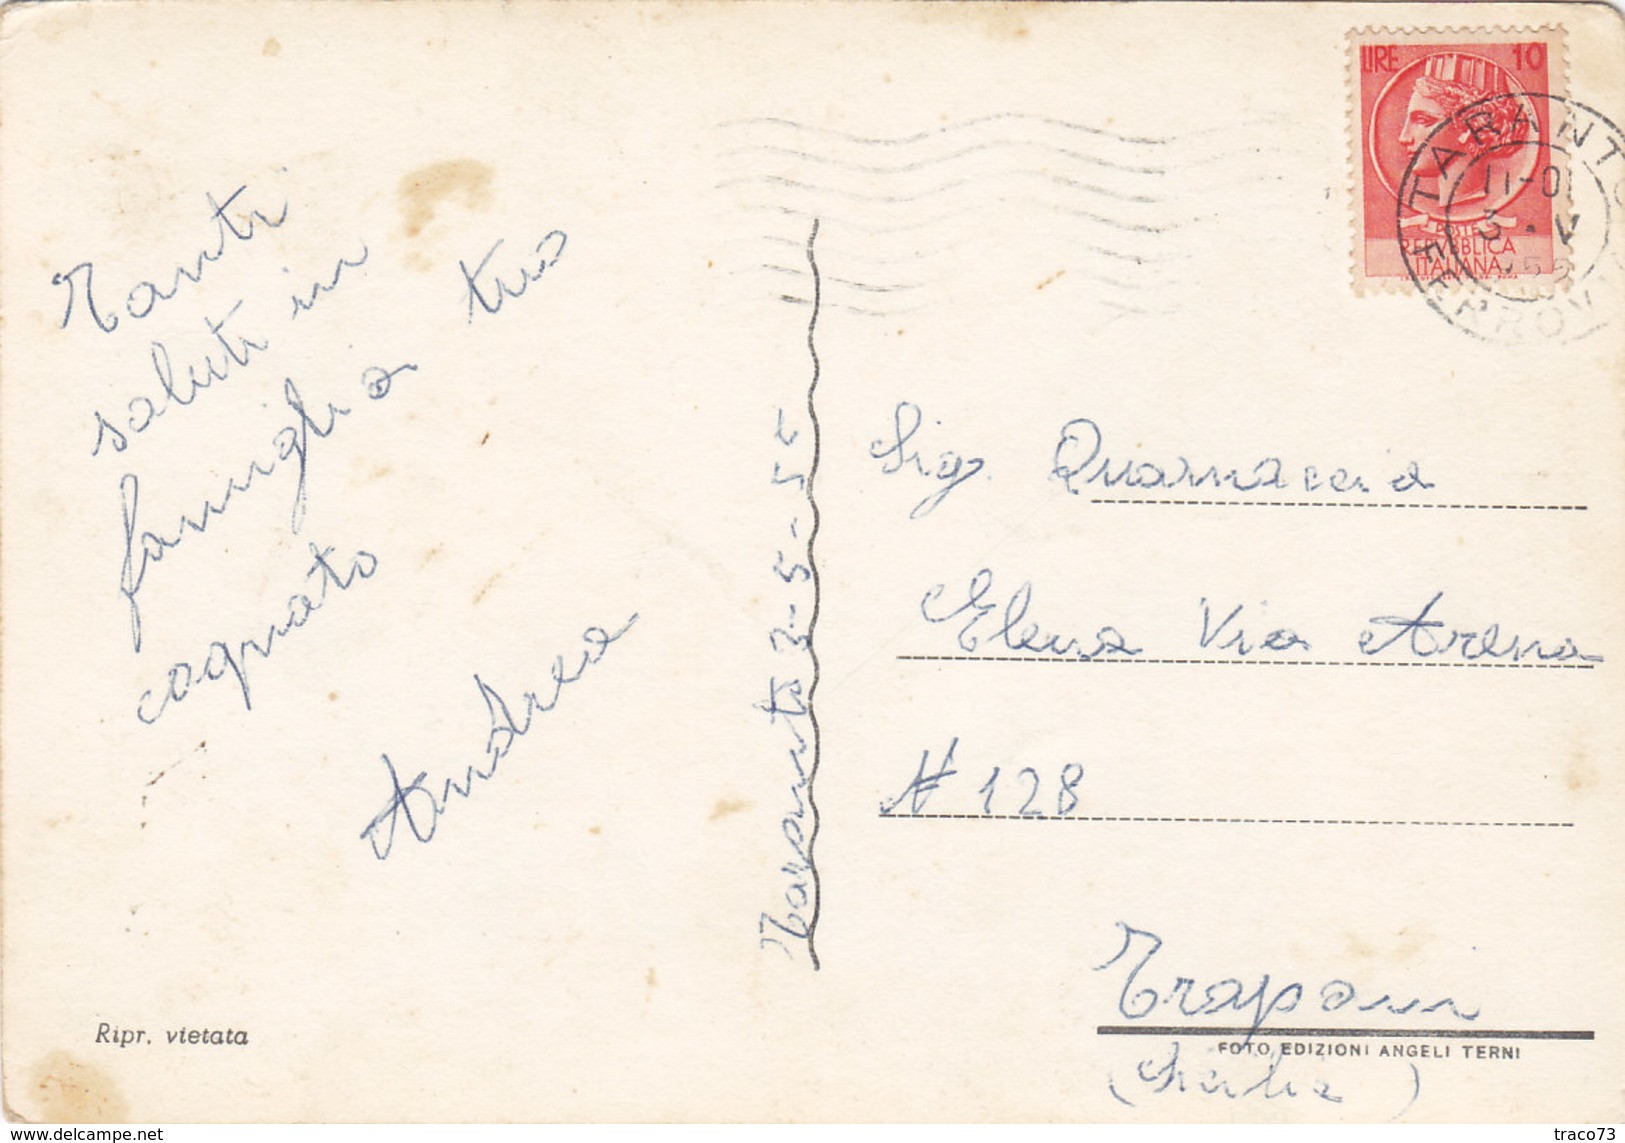 Tanti
saluti in
famiglia tuo
cognato
Andrea
Ripr. vietata
Taranto 3-5-55
LIRE 10
POSTE
REPVBBLICA
ITALIANA
TARANTO
10-11
FERROV
Sig. Quarnaccia
Elena Via Arena
N 128
Trapani
FOTO EDIZIONI ANGELI TERNI
(Sicilia)
delcampe.net
traco73